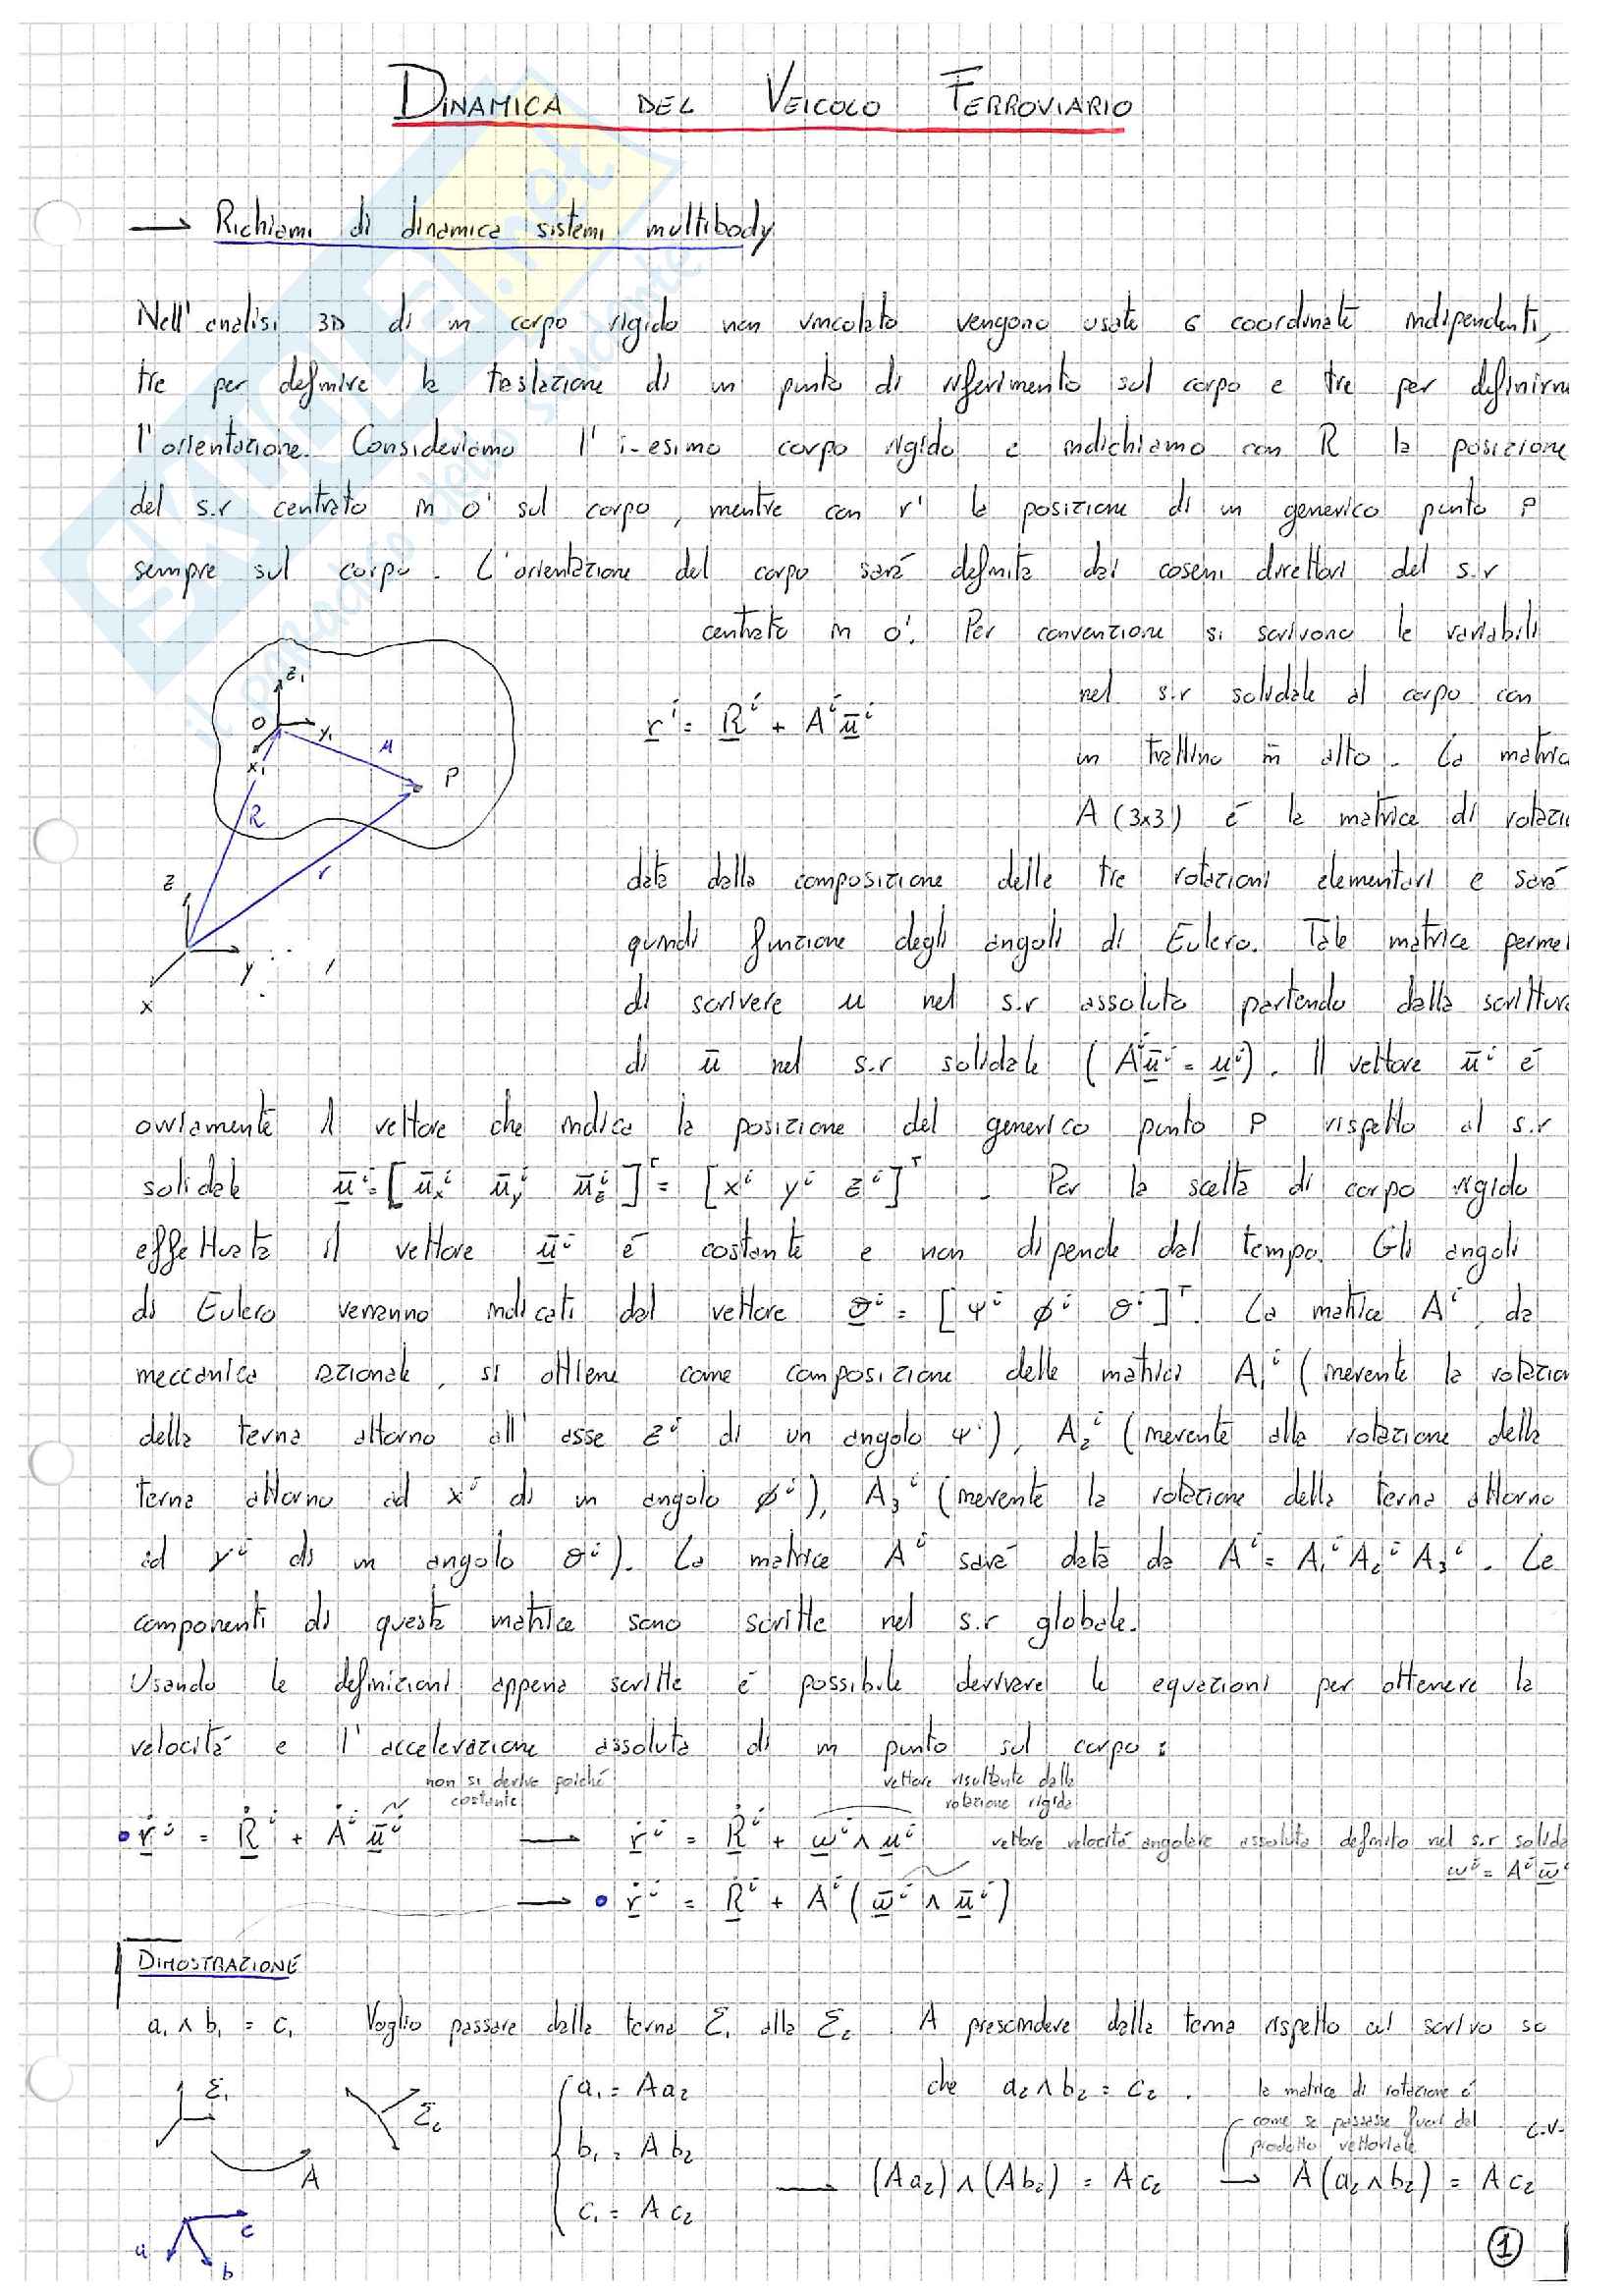 DINAMICA DEL VEICOLO FERROVIARIO
→ Richiami di dinamica sistemi multibody
Nell'analisi 3D di un corpo rigido non vincolato vengono usate 6 coordinate indipendenti,
tre per definire la traslazione di un punto di riferimento sul corpo e tre per definirne
l'orientazione. Consideriamo l'i-esimo corpo rigido e indichiamo con R la posizione
del s.r centrato in O' sul corpo, mentre con r' la posizione di un generico punto P
sempre sul corpo. L'orientazione del corpo sarà definita dai coseni direttori del s.r
centrato in O'. Per convenzione si scrivono le variabili
nel s.r solidale al corpo con
r^i = R^i + A^i ū^i
un trattino in alto. La matric
A (3x3) è la matrice di rotazi
data dalla composizione delle tre rotazioni elementari e sarà
quindi funzione degli angoli di Eulero. Tale matrice permet
di scrivere u nel s.r assoluto partendo dalla scrittura
di ū nel s.r solidale (A^i ū^i = u^i). Il vettore ū^i è
z₁
O
y₁
x₁
u
P
R
r
z
y
x
ovviamente il vettore che indica la posizione del generico punto P rispetto al s.r
solidale ū^i = [ū_x^i ū_y^i ū_z^i]^T = [x^i y^i z^i]^T. Per la scelta di corpo rigido
effettuata il vettore ū^i è costante e non dipende dal tempo. Gli angoli
di Eulero verranno indicati dal vettore θ^i = [ψ^i φ^i θ^i]^T. La matrice A^i, da
meccanica razionale, si ottiene come composizione delle matrici A₁^i (inerente la rotazion
della terna attorno all'asse z^i di un angolo ψ^i), A₂^i (inerente alla rotazione della
terna attorno ad x^i di un angolo φ^i), A₃^i (inerente la rotazione della terna attorno
ad y^i di un angolo θ^i). La matrice A^i sarà data da A^i = A₁^i A₂^i A₃^i. Le
componenti di questa matrice sono scritte nel s.r globale.
Usando le definizioni appena scritte è possibile derivare le equazioni per ottenere la
velocità e l'accelerazione assoluta di un punto sul corpo:
non si deriva poiché
costante
vettore risultante dalla
rotazione rigida
• ṙ^i = Ṙ^i + Ȧ^i ū^i → ṙ^i = Ṙ^i + ω^i ∧ u^i vettore velocità angolare assoluta definito nel s.r solida
ω^i = A^i ω̄^i
→ • ṙ^i = Ṙ^i + A^i (ω̄^i ∧ ū^i)
DIMOSTRAZIONE
a₁ ∧ b₁ = c₁ Voglio passare dalla terna Σ₁ alla Σ₂. A prescindere dalla terna rispetto cui scrivo so
che a₂ ∧ b₂ = c₂.
Σ₁
Σ₂
A
a
b
c
a₁ = A a₂
b₁ = A b₂
c₁ = A c₂
→ (A a₂) ∧ (A b₂) = A c₂ → A (a₂ ∧ b₂) = A c₂
la matrice di rotazione è
come se passasse fuori dal
prodotto vettoriale
c.v.
1